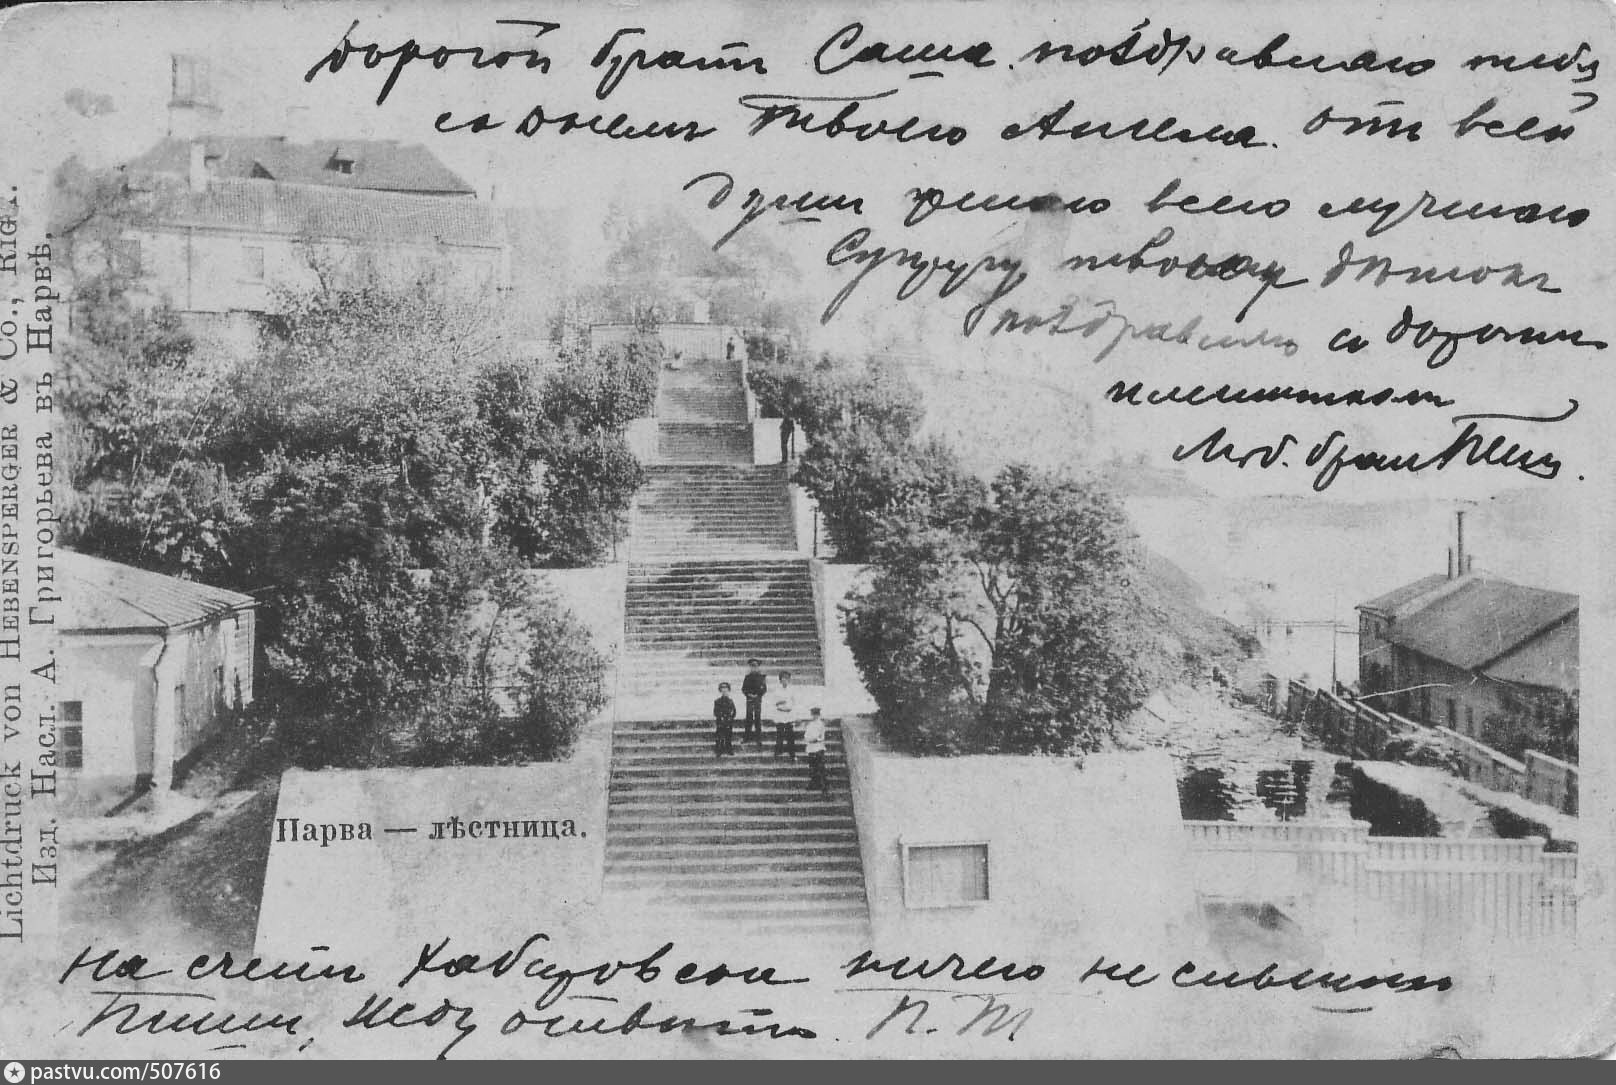 Дорогой братъ Саша. поздравляю тебя
со днемъ Твоего Ангела. отъ всей
души желаю всего лучшаго
Супругу твою и дѣтокъ
поздравляю съ дорогимъ
имениникомъ
Люб. братъ Петя.
Нарва — лѣстница.
Lichtdruck von Hebensperger & Co., Riga.
Изд. Насл. А. Григорьева въ Нарвѣ.
На счетъ Хабаровска ничего не слышни
Пиши, Жду отвѣта. П. Т
pastvu.com/507616